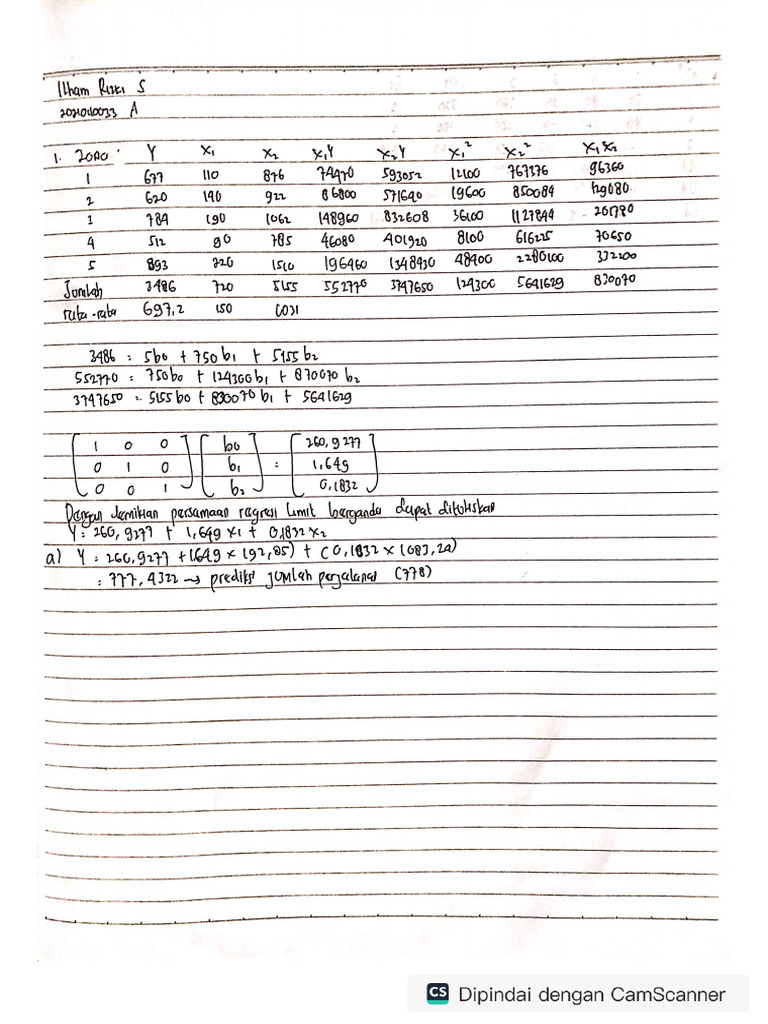 Ilham Rizki S
2021040033 A
1. Zona Y X₁ X₂ X₁Y X₂Y X₁² X₂² X₁X₂
1 677 110 876 74470 593052 12100 767376 96360
2 620 140 922 86800 571640 19600 850084 129080
3 784 190 1062 148960 832608 36100 1127844 201780
4 512 90 785 46080 401920 8100 616225 70650
5 893 220 1510 196460 1348430 48400 2280100 332200
Jumlah 3486 720 5155 552770 3747650 124300 5641629 830070
rata-rata 697,2 150 1031
3486 = 5b0 + 750b₁ + 5155b₂
552770 = 750b₀ + 124300b₁ + 870070 b₂
3747650 = 5155 b0 + 830070 b₁ + 5641629
1 0 0 b0 260,9277
0 1 0 b₁ = 1,649
0 0 1 b₂ 0,1832
Dengan demikian persamaan regresi berganda dapat dituliskan
Y = 260,9277 + 1,649 x₁ + 0,1832 x₂
a) Y = 260,9277 + (1,649 x 192,85) + (0,1832 x 1083,24)
= 777,4322 → prediksi jumlah perjalanan (778)
CS Dipindai dengan CamScanner